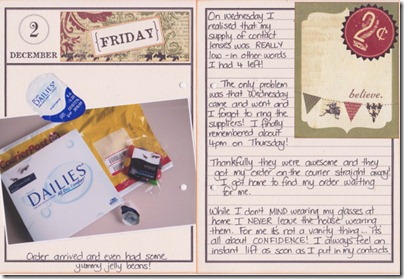 2
DECEMBER
{FRIDAY}
DAILIES
CourierPost
DAILIES
Order arrived and even had some
yummy jelly beans!
On wednesday I
realised that my
supply of contact
lenses was REALLY
low - in other words
I had 4 left!
The only problem
was that Wednesday
came and went and
I forgot to ring the
suppliers! I finally
remembered about
4pm on Thursday!
Thankfully they were awesome and they
got my order on the courier straight away!
I got home to find my order waiting
for me.
While I don't MIND wearing my glasses at
home I NEVER leave the house wearing
them. For me it's not a vanity thing... it's
all about CONFIDENCE! I always feel an
instant lift as soon as I put in my contacts
2¢
believe.